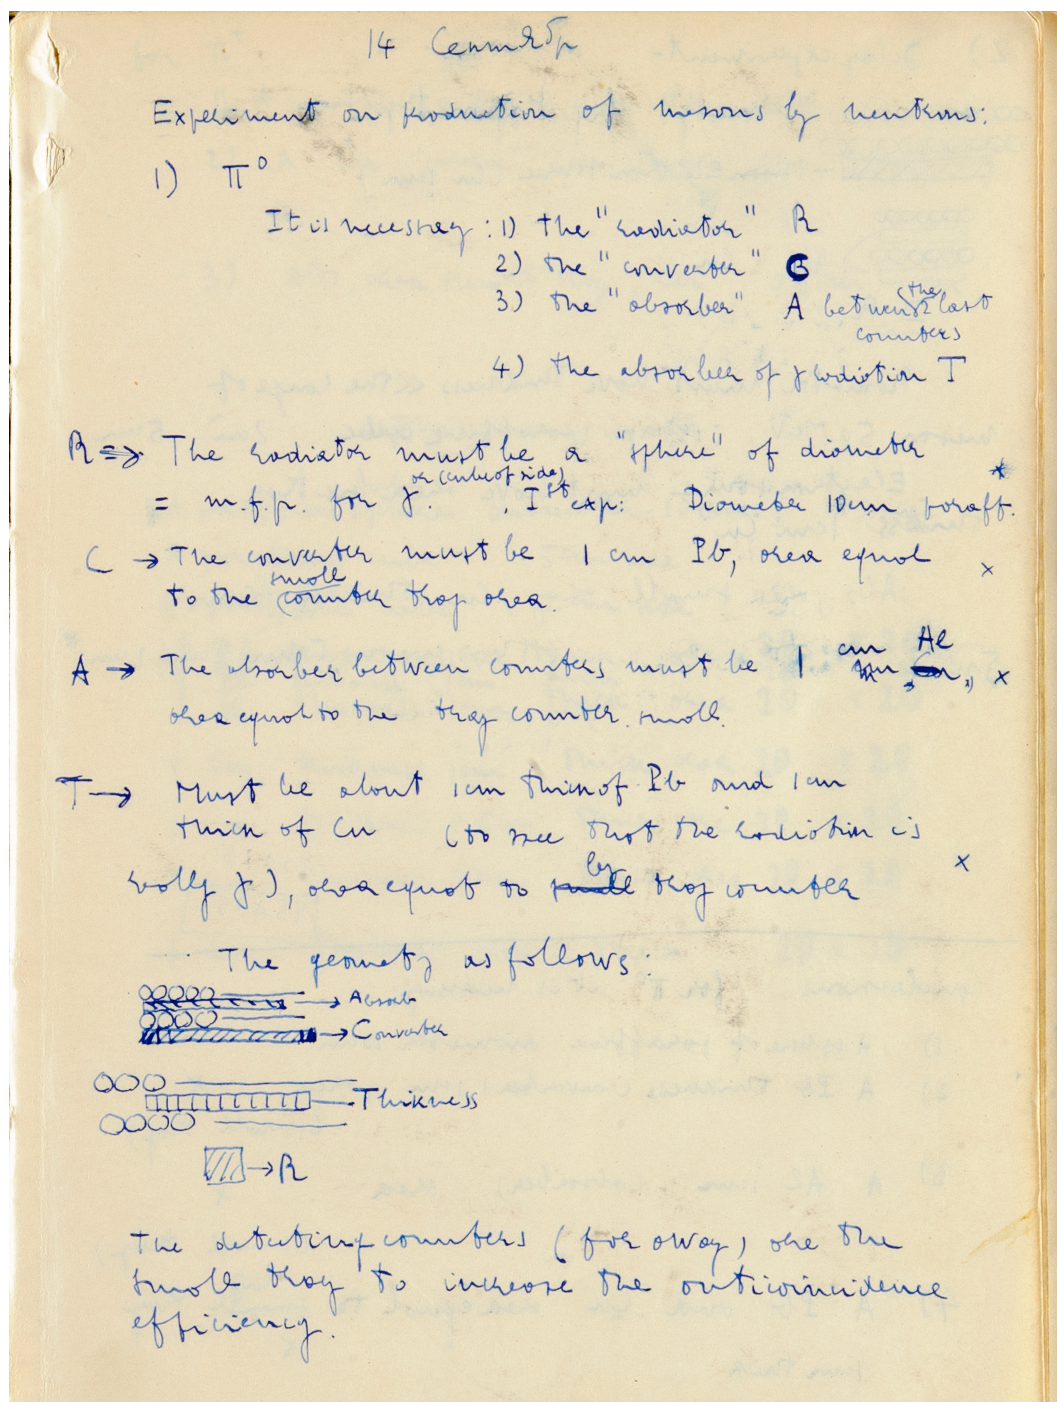 14 Сентябр
Experiment on production of mesons by neutrons:
1) π⁰
It is necessary: 1) the "radiator" R
2) the "converter" C
3) the "absorber" A between the 2 last
counters
4) the absorber of γ radiation T
R ⇒ The radiator must be a "sphere" of diameter
= m.f.p. for γ. or (cube of side), Ist exp: Diameter 10cm paraff. x
C → The converter must be 1 cm Pb, area equal x
to the small counter tray area.
A → The absorber between counters must be 1 cm Al, x
area equal to the tray counter small.
T → Must be about 1cm thick of Pb and 1cm
thick of Cu (to see that the radiation is x
really γ), area equal to big tray counter
The geometry as follows:
→ Absorb
→ Converter
Thikness
→ R
The detecting counters (far away) are the
small tray to increase the anticoincidence
efficiency.